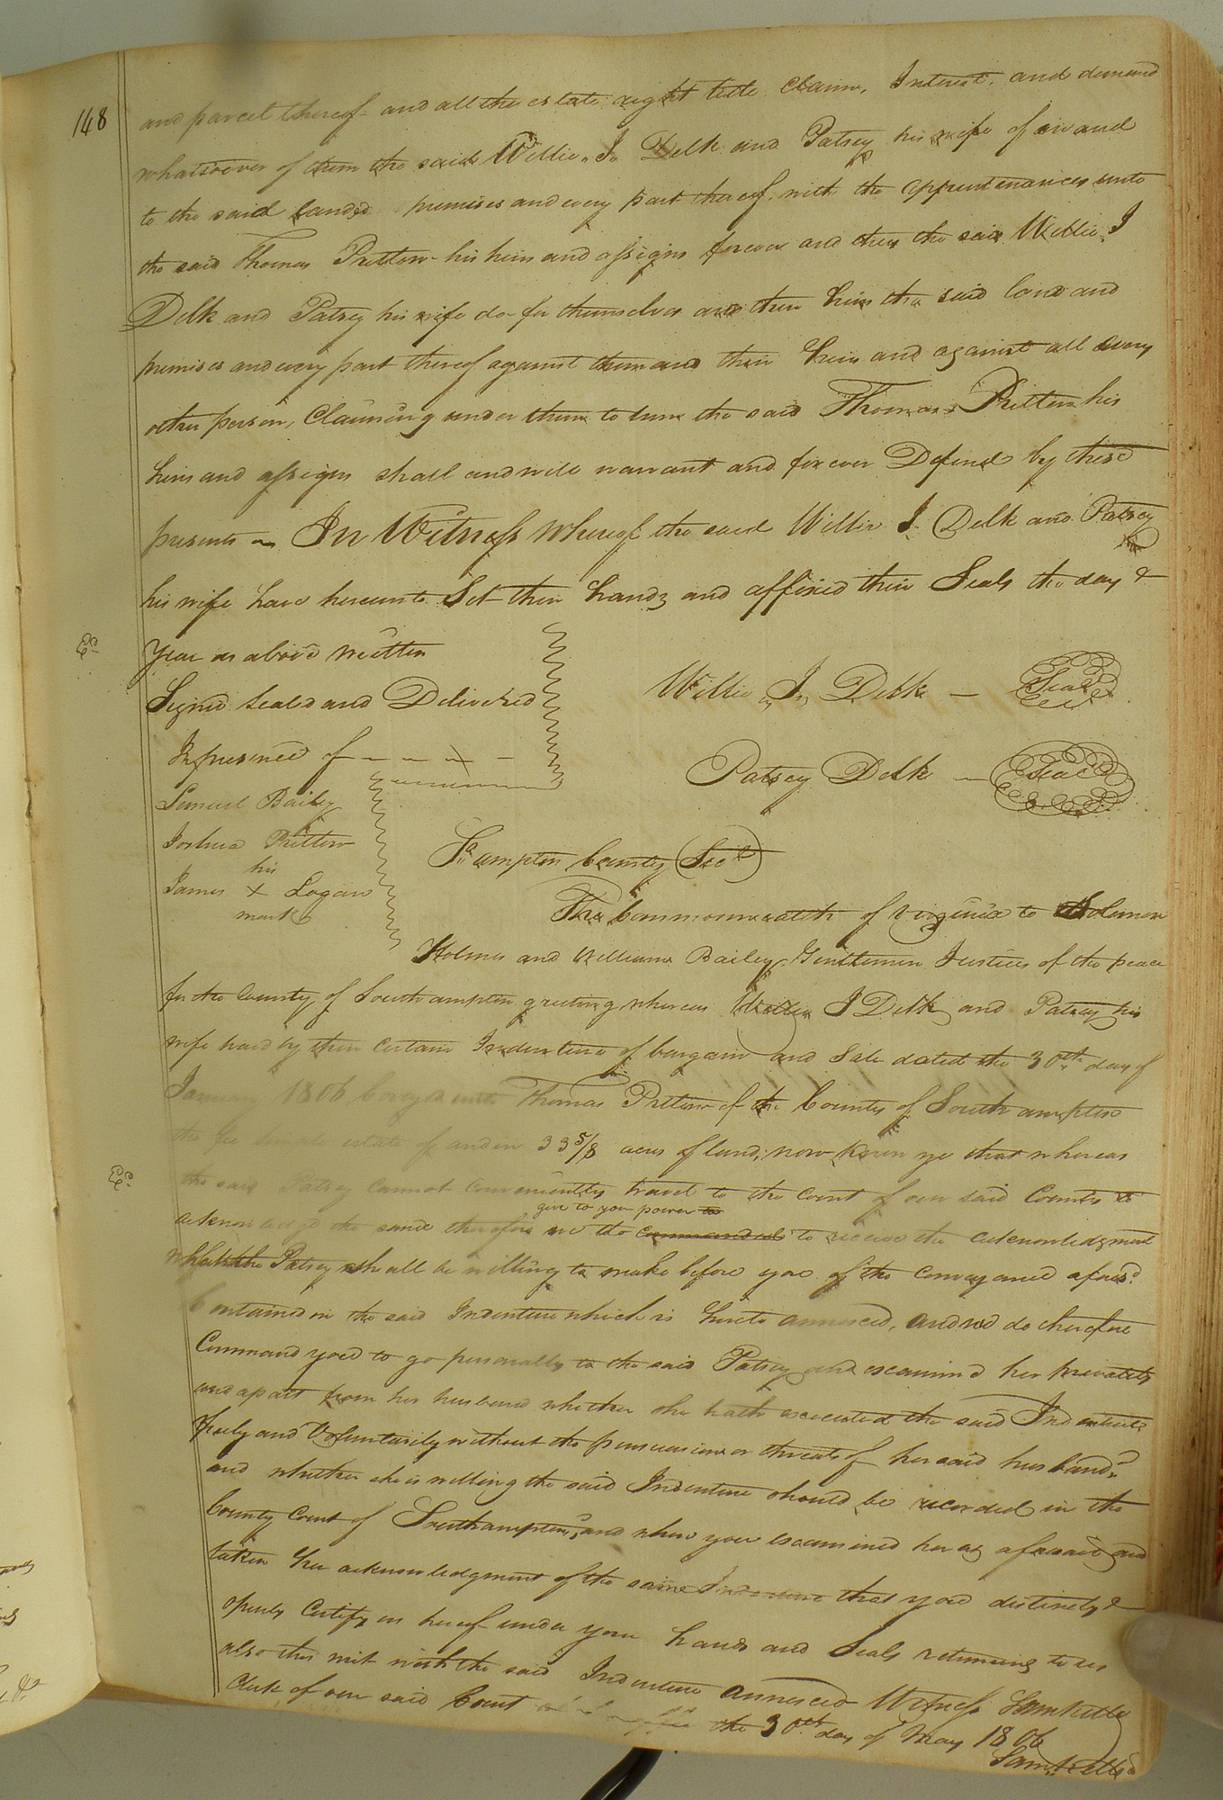 148
and parcel thereof and all the estate right title Claim, Interest, and demand
whatsoever of them the said Willie. J. Delk and Patsey his wife of in and
to the said landed premises and every part thereof with the appurtenances unto
the said Thomas Pretlow his heirs and assigns forever and they the said Willie. J
Delk and Patsey his wife do for themselves and their heirs the said land and
premises and every part thereof against them and their heirs and against all every
other person, Claiming under them to him the said Thomas Pretlow his
heirs and assigns shall and will warrant and forever Defend by these
presents In Witness whereof the said Willie J. Delk and Patsey
his wife have hereunto Set their hands and affixed their Seals the day &
Year as above written
Signed Sealed and Delivered
Willie J. Delk Seal
In presence of
Patsey Delk Seal
Samuel Bailey
Joshua Pretlow
his
James X Logan
mark
S. ampton County Sect
The Commonwealth of Virginia to Solomon
Holmes and William Bailey Gentlemen Justices of the peace
for the County of Southampton greeting whereas Willie J Delk and Patsey his
wife have by their certain Indenture of bargain and Sale dated the 30th day of
January 1806 conveyed unto Thomas Pretlow of the County of Southampton
the fee simple estate of and in 33 5/8 acres of land, now know ye that whereas
the said Patsey cannot conveniently travel to the Court of our said County to
give to you power to
acknowledge the same therefore we do command to receive the acknowledgment
which the Patsey shall be willing to make before you of the conveyance aforesd.
Contained in the said Indenture which is hereto annexed, and we do therefore
Command you to go personally to the said Patsey and examine her privately
and apart from her husband whether she hath executed the said Indenture
freely and Voluntarily without the persuasions or threats of her said husband,
and whether she is willing the said Indenture should be recorded in the
County Court of Southampton, and when you examined her as aforesaid and
taken her acknowledgment of the same Indenture that you distinctly &
openly Certify us hereof under your hands and Seals returning to us
also this writ with the said Indenture annexed Witness Saml Kello
Clerk of our said Court the 30th day of May 1806
Saml Kello